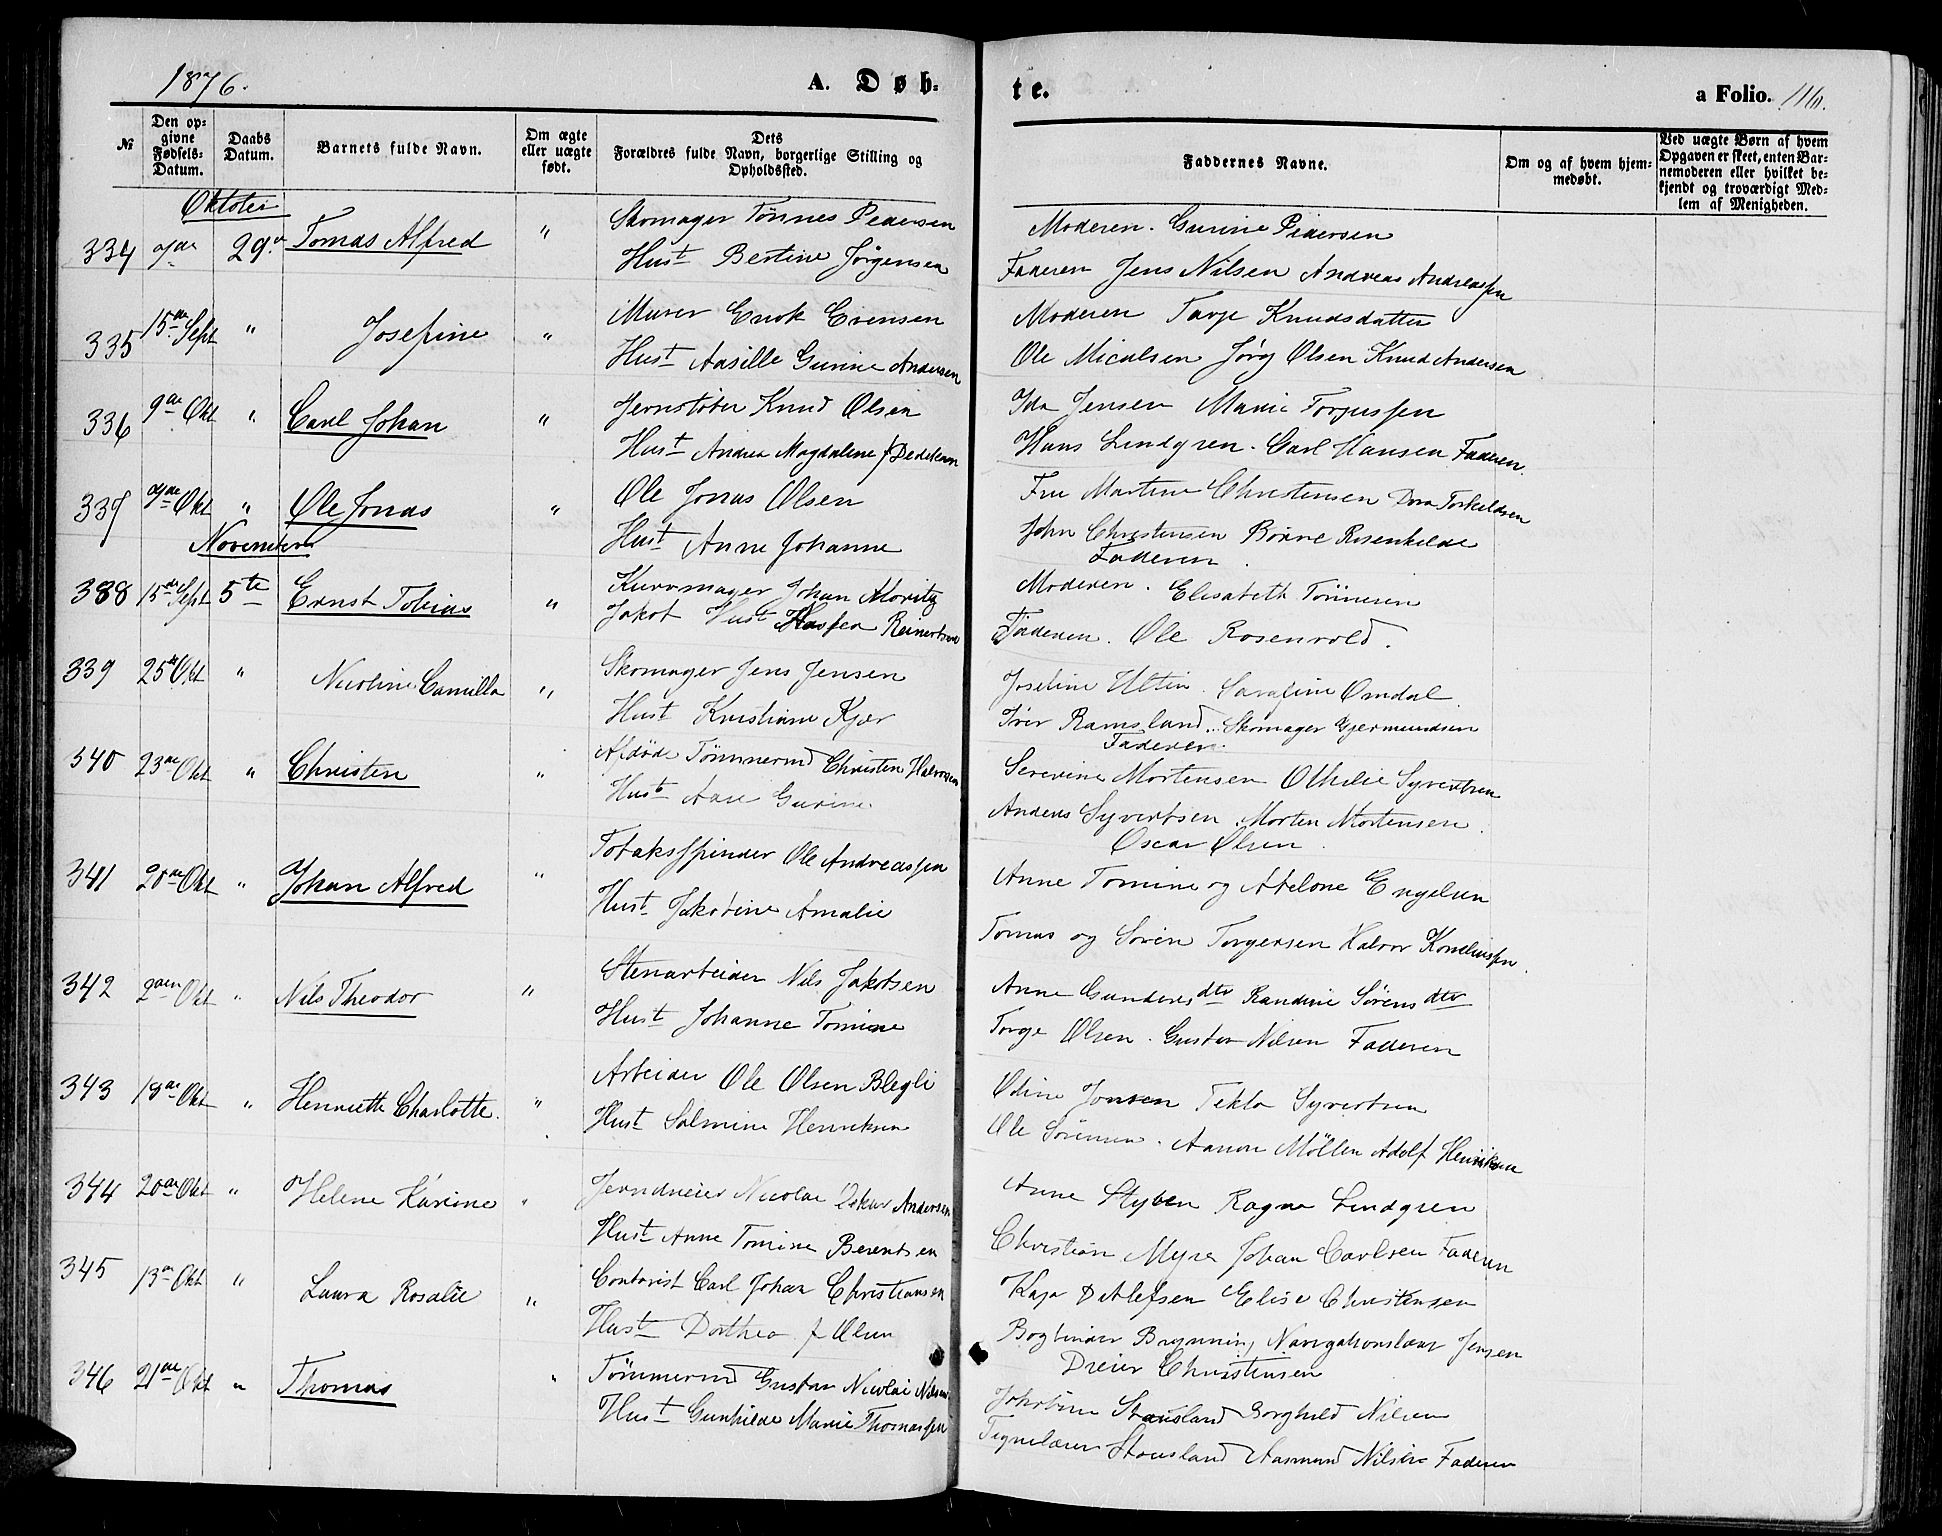 1876.
A. Døb-
te.
a Folio. 116.
№
Den op-
givne
Fødsels-
Datum.
Daabs
Datum.
Barnets fulde Navn.
Om ægte
eller uægte
født.
Dets
Forældres fulde Navn, borgerlige Stilling og
Opholdssted.
Faddernes Navne.
Om og af hvem hjem-
medøbt.
Ved uægte Børn af hvem
Opgaven er skeet, enten Bar-
nemoderen eller hvilket be-
kjendt og troværdigt Med-
lem af Menigheden.
Oktober
334 7de 29de Tomas Alfred " Skomager Tønnes Pedersen
Hust Bertine Jørgensen
Moderen. Gurine Pedersen
Faderen Jens Nilsen Andreas Andreassen
335 15de Sept " Josefine " Murer Enok Evensen
Hust Aasille Gurine Andersen
Moderen Tarje Knudsdatter
Ole Micalsen Jørg Olsen Knud Andersen
336 9de Okt " Carl Johan " Jernstøber Knud Olsen
Hust Andrea Magdalene f Dedekam
Ida Jensen Marie Torjussen
Hans Lindgren. Carl Hansen Faderen.
337 7de Okt " Ole Jonas " Ole Jonas Olsen
Hust Anne Johanne
Fru Martine Christensen Dora Torkildsen
John Christensen Børre Rosenkilde
Faderen.
November
338 15de Sept 5te Ernst Tobias " Kurvmager Johan Moritz
Jakob Hust Reinertsen
Moderen. Elisabeth Tønnesen
Faderen. Ole Rosenvold.
339 25de Okt " Nicoline Camilla " Skomager Jens Jensen
Hust Kristiane Kjær
Josefine Ultin. Sarafine Omdal.
Iver Ramsland. Skomager Gjermundsen
Faderen.
340 23de Okt " Christen " Afdøde Tømmermd Christen Halvorsen
Hust Aase Gurine
Severine Mortensen Othelie Syvertsen
Anders Syvertsen. Morten Mortensen.
Oscar Olsen.
341 20de Okt " Johan Alfred " Tobakspinder Ole Andreassen
Hust Jakobine Amalie
Anne Tomine og Abelone Engelsen
Tomas og Søren Torgersen Halvor Kornliussen.
342 2den Okt " Nils Theodor " Stenarbeider Nils Jakobsen
Hust Johanne Tomine
Anne Gundersdtr Randine Sørensdtr
Torge Olsen. Gustav Nilsen Faderen
343 18de Okt " Henriette Charlotte. " Arbeider Ole Olsen Blegli
Hust Salmine Henriksen
Odine Jonsen Tekla Syvertsen
Ole Sørensen. Aanon Møllen Adolf Henriksen
344 20de Okt " Helene Karine " Jerndreier Nicolai Oskar Andersen
Hust Anne Tomine Berentsen
Anne Ragna Lindgren
Christian Myra Johan Carlsen Faderen
345 13de Okt " Laura Rosalie " Contorist Carl Johan Christiansen
Hust Dorthea f Olsen
Kaja Detlefsen Elise Christensen
Bogbinder Brynning, Navigationslærer Jensen
Dreier Christensen
346 21de Okt " Thomas " Tømmermd Gustav Nicolai Nilsen
Hust Gunhilde Marie Thomassen
Jakobine Stousland Borghild Nilsen
Tegnelærer Stousland Aasmund Nilsen Faderen